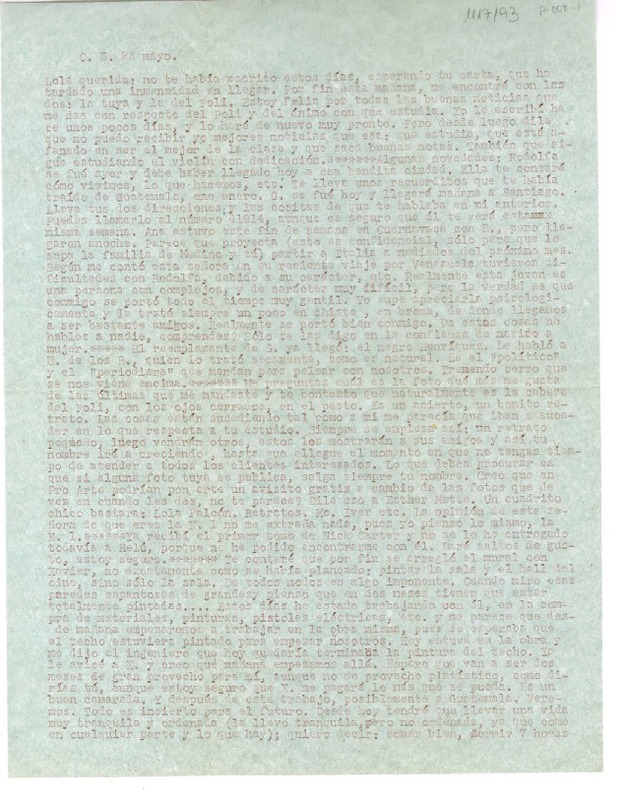 1117/93
C. Z. 23 mayo.
Lola querida: no te había escrito estos días, esperando tu carta, que ha
tardado una inmensidad en llegar. Por fin esta mañana, me encontré con las
dos: la tuya y la del Poli. Estoy feliz por todas las buenas noticias que
me das con respecto del Poli y del ánimo con que estudia. Yo le escribí ha
ce unos pocos días, y lo haré de nuevo muy pronto. Pero desde luego dile
que no puedo recibir yo mejores noticias que esta: que estudia, que está a-
fanado en ser el mejor de la clase y que saca buenas notas. También que si-
gue estudiando el violín con dedicación. Algunas novedades: Rodolfo
se fué ayer y debe haber llegado hoy a esa bendita ciudad. Ella te contará
cómo vivimos, lo que hacemos, etc. Te lleva unos que te había
traído de Guatemala, en enero. G. se fué hoy y llegará mañana a Santiago.
Lleva tus dos direcciones y las cositas de que te hablaba en mi anterior.
Puedes llamarlo al número 41814, aunque es seguro que él te verá esta
misma semana. Ana estuvo este fin de semana en Cuernavaca con M., pero lle-
garon anoche. Parece que proyecta (esto es confidencial, sólo para que lo
sepa la familia de Medina y tú) partir a Italia a mediados del próximo mes.
Según me contó esta señora en su reciente viaje por Venezuela tuvieron di-
ficultades con Rodolfo, debido a su carácter, etc. Realmente esta joven es
una persona con complejos, y de carácter muy difícil, pero la verdad es que
conmigo se portó todo el tiempo muy gentil. Yo supe apreciarla psicologi-
camente y la traté siempre un poco en chiste, en broma, de donde llegamos
a ser bastante amigos. Realmente se portó bien conmigo. De estas cosas no
hables a nadie, comprendes? Sólo te las digo en la confianza de marido a
mujer. El reemplazante de G. ya llegó: el negro Henríquez. Le habló a
E. de los R., quien lo trató secamente, como es natural. Es el "político"
y el "periodista" que mandan para pelear con nosotros. Tremendo cerro que
se nos viene encima. Me preguntas cuál es la foto que más me gusta
de las últimas que me mandaste y te contesto que naturalmente es la cabeza
del Poli, con los ojos cerrados, en el pasto. Es un acierto, un bonito re-
trato. Las cosas están sucediendo tal como a mi me parecía que iban a suce-
der en lo que respecta a tu estudio. Siempre se empieza así: un retrato
pequeño, luego vendrán otros, estos los mostrarán a sus amigos y así tu
nombre irá creciendo, hasta que llegue el momento en que no tengas tiem-
po de atender a todos los clientes interesados. Lo que debes procurar es
que si alguna foto tuya se publica, salga siempre tu nombre. Creo que en
Pro Arte podrían ponerte un avisito gratis a cambio de las fotos que de
vez en cuando les das, no te parece? Dile eso a Esther Matte. Un cuadrito
chico bastará: Lola Falcón. Retratos. Mc. Iver etc. La opinión de esta se-
ñora de que eres la N. 1 no me extrada nada, pues yo pienso lo mismo, la
N. 1. Ya recibí el primer tomo de Nick Carter y no se lo he entregado
todavía a Helú, porque no he podido encontrarme con él. Dará saltos de gus-
to, estoy seguro. Te contaré que por fin se arregló el mural con
Xavier, no exactamente como se había planeado: pintar la sala y el hall del
cine, sino sólo la sala. De todos modos es algo imponente. Cuando miro esas
paredes espantosas de grandes y pienso que en dos meses tienen que estar
totalmente pintadas.... Estos días he estado trabajando con él, en la com-
pra de materiales, pinturas, pistolas eléctricas, etc. y me parece que des-
de mañana empezaremos a trabajar en la obra misma, pues se esperaba que
el techo estuviera pintado para empezar nosotros. Hoy estuve en la obra y
me dijo el ingeniero que hoy quedaría terminada la pintura del techo. Ya
le avisé a X. y creo que mañana empezamos allá. Espero que van a ser dos
meses de gran provecho para mí, aunque no de provecho platístico, como di-
rías tú, aunque estoy seguro que X. me pagará lo más que se pueda. Es un
buen camarada. Y después de este trabajo, posiblemente a Guatemala. Vere-
mos. Todo es incierto para el futuro. Desde hoy tendré que llevar una vida
muy tranquila y ordenada (la llevo tranquila, pero no ordenada, ya que como
en cualquier parte y lo que hay); quiero decir: comer bien, dormir 7 horas